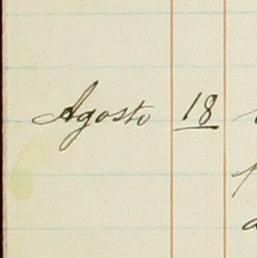 Agosto 18